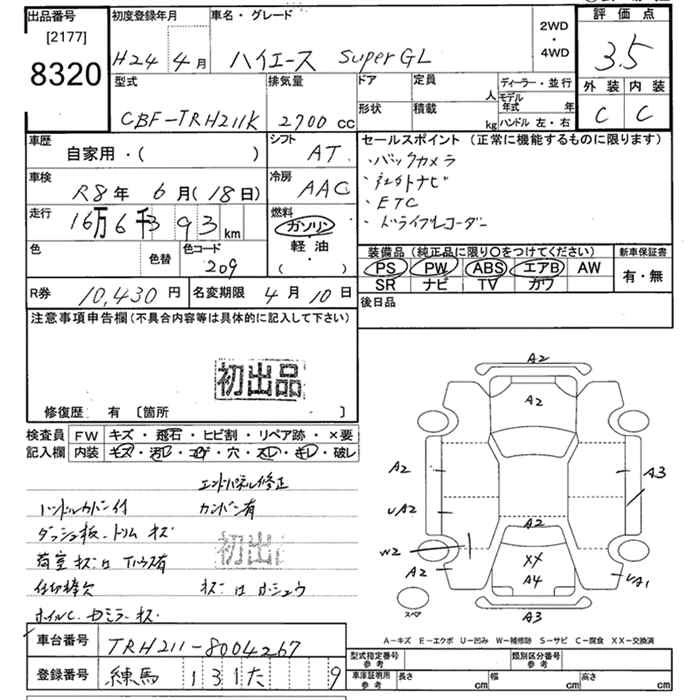 出品番号
[2177]
8320
初度登録年月
H24 4月
車名・グレード
ハイエース Super GL
2WD
・
4WD
評価点
3.5
外装 内装
C C
型式
CBF-TRH211K
排気量
2700 cc
ドア
形状
定員
人
積載
kg
ディーラー・並行
モデル年式 年
ハンドル 左・右
車歴
自家用・( )
シフト
AT
車検
R8年 6月(18日)
冷房
AAC
走行
16万6千393 km
燃料
ガソリン
軽油
( ・ )
色
色替
色コード
209
R券
10,430円
名変期限
4月10日
セールスポイント (正常に機能するものに限ります)
・バックカメラ
・ETC
・ドライブレコーダー
装備品 (純正品に限り○をつけてください)
PS PW ABS エアB AW
SR ナビ TV カワ
新車保証書
有・無
後日品
注意事項申告欄(不具合内容等は具体的に記入して下さい)
初出品
修復歴 有 [箇所 ]
検査員
記入欄
FW キズ・飛石・ヒビ割・リペア跡・×要
内装 キズ・汚レ・コゲ・穴・スレ・キレ・破レ
エンドパネル修正
ハンドルカバー付 カンバン有
ダッシュ板・トリム キズ
初出
荷室 キズ
仕切棒欠
ホイルC. ミラー キズ
車台番号
TRH211-8004267
登録番号
練馬 131 た 9
A2
A2
A2
A3
UA2
A2
W2
A2
XX
A4
UA1
スペア
A3
A-キズ E-エクボ U-凹み W-補修跡 S-サビ C-腐食 XX-交換済
型式指定番号
参考
類別区分番号
参考
車庫証明用
参考
長さ cm
幅 cm
高さ cm